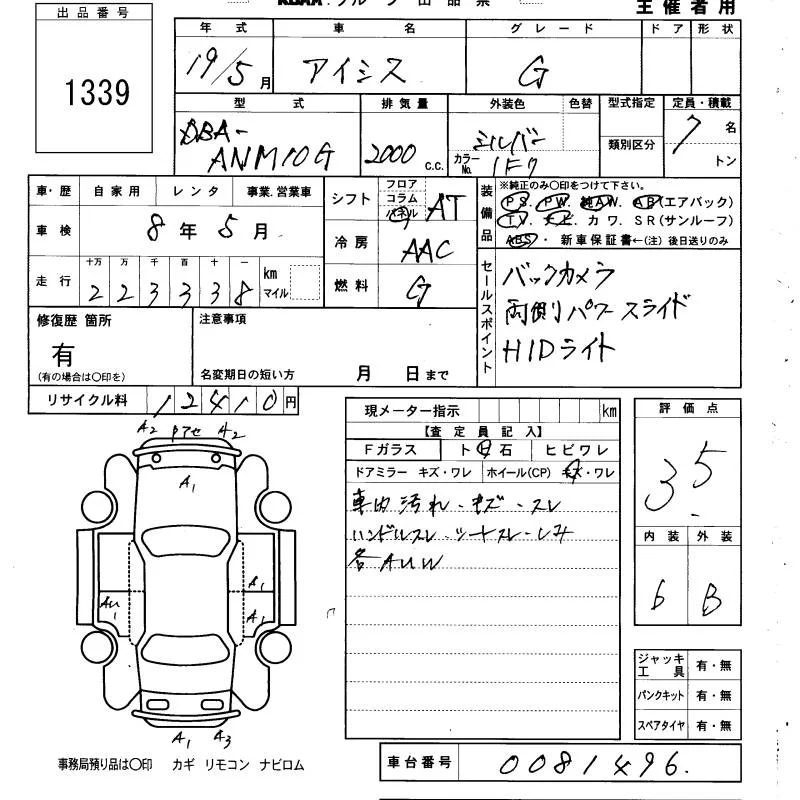 主催者用
出品番号
1339
年式 車名 グレード ドア 形状
19/5月 アイシス G
型式 排気量 外装色 色替 型式指定 定員・積載
DBA-
ANM10G 2000 c.c. シルバー カラーNo. 1F7 類別区分 7名
トン
車・歴 自家用 レンタ 事業.営業車
車検 8年5月
走行 十万 万 千 百 十 一
223338 km マイル
シフト フロア コラム パネル AT
冷房 AAC
燃料 G
装備品 ※純正のみ〇印をつけて下さい。
PS. PW. 純AW. AB(エアバック)
TV. ナビ カワ. SR(サンルーフ)
ABS・ 新車保証書←(注) 後日送りのみ
セールスポイント
バックカメラ
両側パワースライド
HIDライト
修復歴 箇所
有
(有の場合は〇印を)
注意事項
名変期日の短い方 月 日まで
リサイクル料 12410円
現メーター指示 km
【査定員記入】
Fガラス ト 石 ヒビワレ
ドアミラー キズ・ワレ ホイール(CP) キズ・ワレ
車内汚れ・キズ・スレ
ハンドルスレ・シートスレ・しみ
各AUW
評価点
3.5
内装 外装
6 B
A2 A2
A1
A1
AU1 A1
A1 A3
ジャッキ工具 有・無
パンクキット 有・無
スペアタイヤ 有・無
事務局預り品は〇印 カギ リモコン ナビロム
車台番号 0081496.